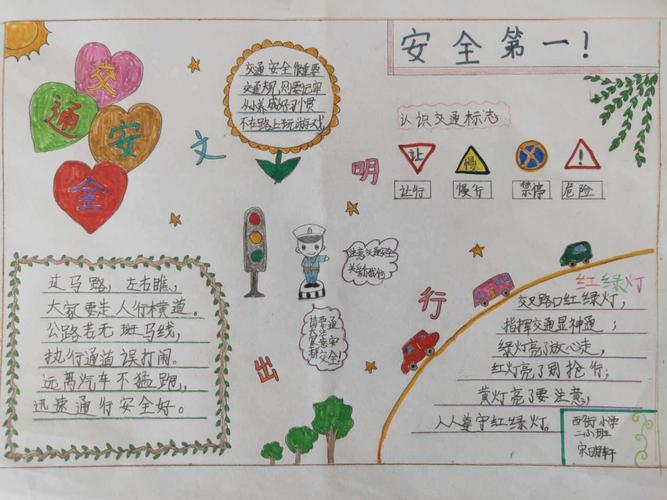 交
通
安
全
交通安全很重要
交通规则要记牢
从小养成好习惯
不在路上玩游戏
安全第一！
认识交通标志
让
慢
！
让行
慢行
禁停
危险
文
明
出
行
注意交通安全
过马路，左右瞧，
大家要走人行横道。
公路若无斑马线，
执行通道莫打闹。
远离汽车不猛跑，
迅速通行安全好。
红绿灯
交叉路口红绿灯，
指挥交通显神通；
绿灯亮了放心走，
红灯亮了别抢行；
黄灯亮了要注意，
人人遵守红绿灯。
西街小学
二小班